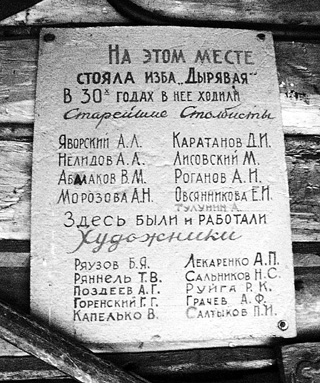 На этом месте
стояла изба „Дырявая"
В 30х годах в нее ходили
Старейшие Столбисты
Яворский А.Л. Каратанов Д.И.
Нелидов А.А. Лисовский М.
Абмаков В.М. Роганов А.И.
Морозова А.Н. Овсянникова Е.И.
Тулунин А.
Здесь были и работали
Художники
Ряузов Б.Я. Лекаренко А.П.
Ряннель Т.В. Сальников Н.С.
Поздеев А.Г. Руйга Р.К.
Горенский Г.Г. Грачев А.Ф.
Капелько В. Салтыков П.И.